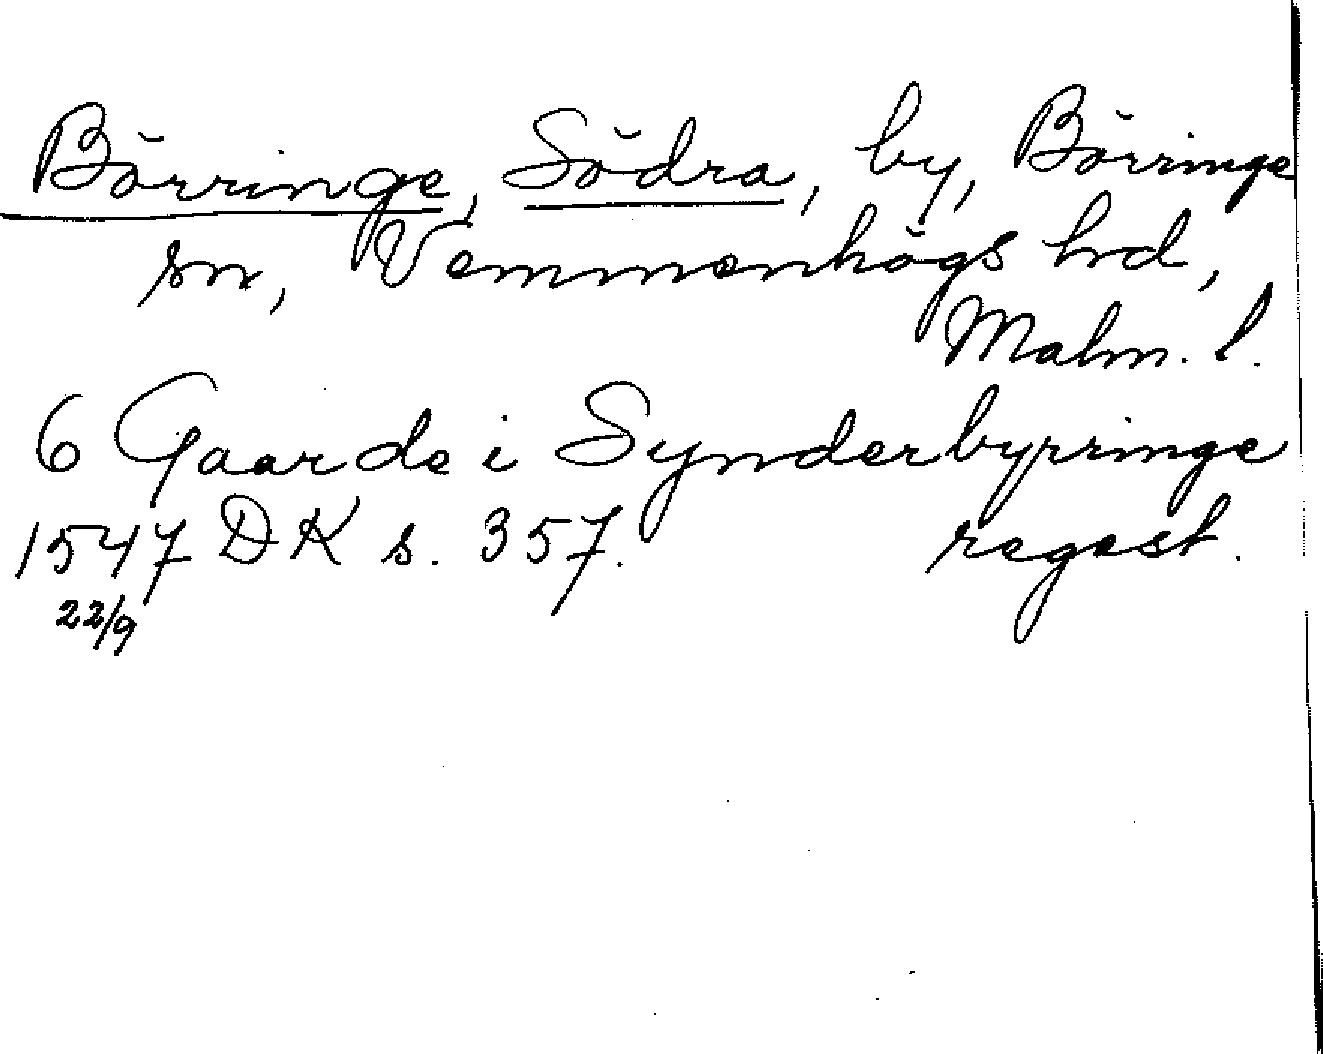 Börringe, Södra, by, Börringe
sn, Vemmenhögs hrd,
Malm. l.
6 Gaarde i Synderbyrringe
1547 DK s. 357. regest.
22/9